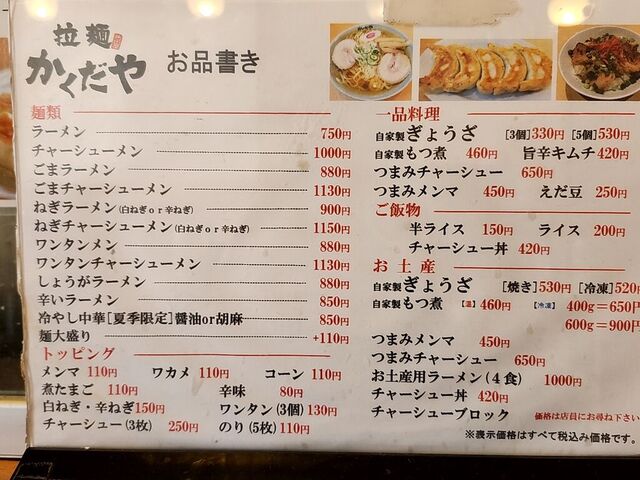 拉麺
かくだや
お品書き
麺類
ラーメン 750円
チャーシューメン 1000円
ごまラーメン 880円
ごまチャーシューメン 1130円
ねぎラーメン(白ねぎor辛ねぎ) 900円
ねぎチャーシューメン(白ねぎor辛ねぎ) 1150円
ワンタンメン 880円
ワンタンチャーシューメン 1130円
しょうがラーメン 880円
辛いラーメン 850円
冷やし中華[夏季限定]醤油or胡麻 850円
麺大盛り +110円
トッピング
メンマ 110円 ワカメ 110円 コーン 110円
煮たまご 110円 辛味 80円
白ねぎ・辛ねぎ150円 ワンタン(3個)130円
チャーシュー(3枚) 250円 のり(5枚)110円
一品料理
自家製ぎょうざ [3個]330円 [5個]530円
自家製もつ煮 460円 旨辛キムチ420円
つまみチャーシュー 650円
つまみメンマ 450円 えだ豆 250円
ご飯物
半ライス 150円 ライス 200円
チャーシュー丼 420円
お土産
自家製ぎょうざ [焼き]530円 [冷凍]520円
自家製もつ煮 【温】460円 【冷凍】 400g=650円
600g=900円
つまみメンマ 450円
つまみチャーシュー 650円
お土産用ラーメン(4食) 1000円
チャーシュー丼 420円
チャーシューブロック 価格は店員にお尋ね下さい
※表示価格はすべて税込み価格です。